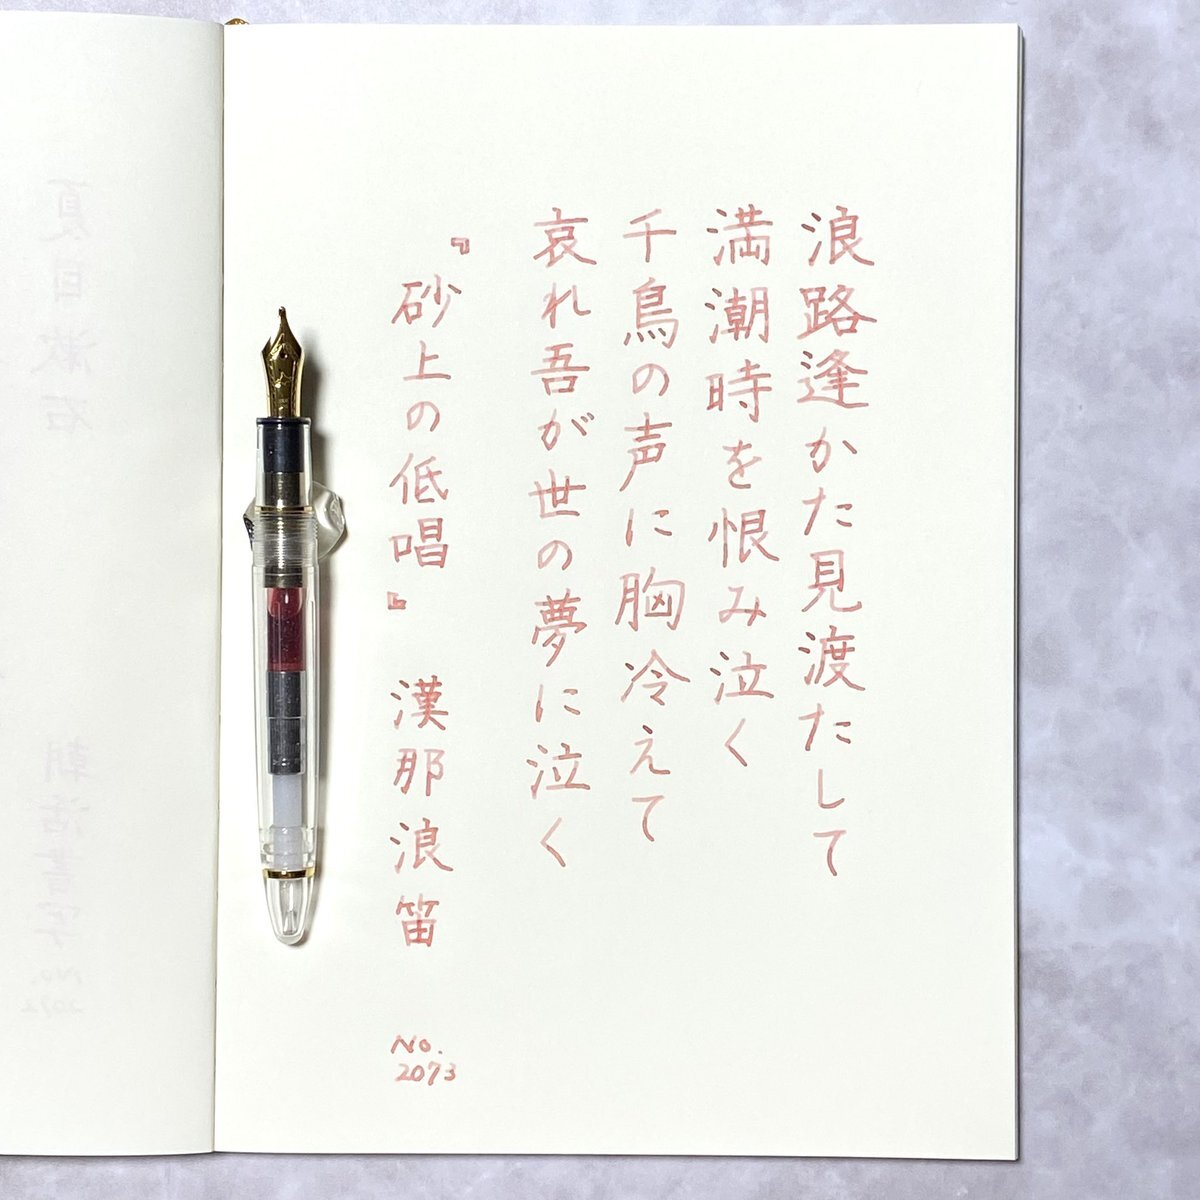 浪路逢かた見渡たして
満潮時を恨み泣く
千鳥の声に胸冷えて
哀れ吾が世の夢に泣く
『砂上の低唱』 漢那浪笛
No.
2073